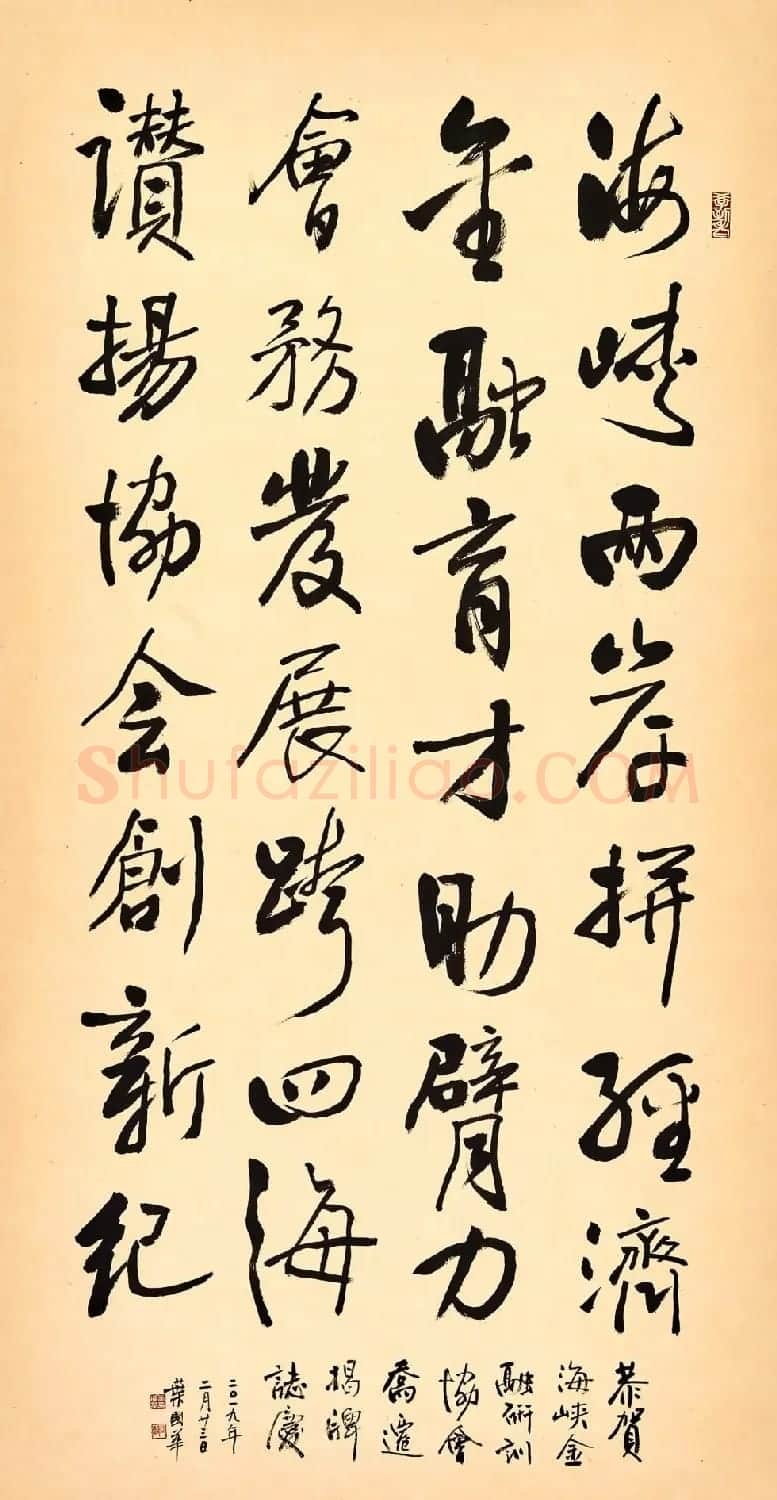 海峽兩岸拼經濟
金融育才助臂力
會務發展跨四海
讚揚協会創新紀
恭賀
海峽金
融術訓
協會
喬遷
揭牌
誌慶
二〇一九年
二月廿三日
葉國華
Shufaziliao.COM